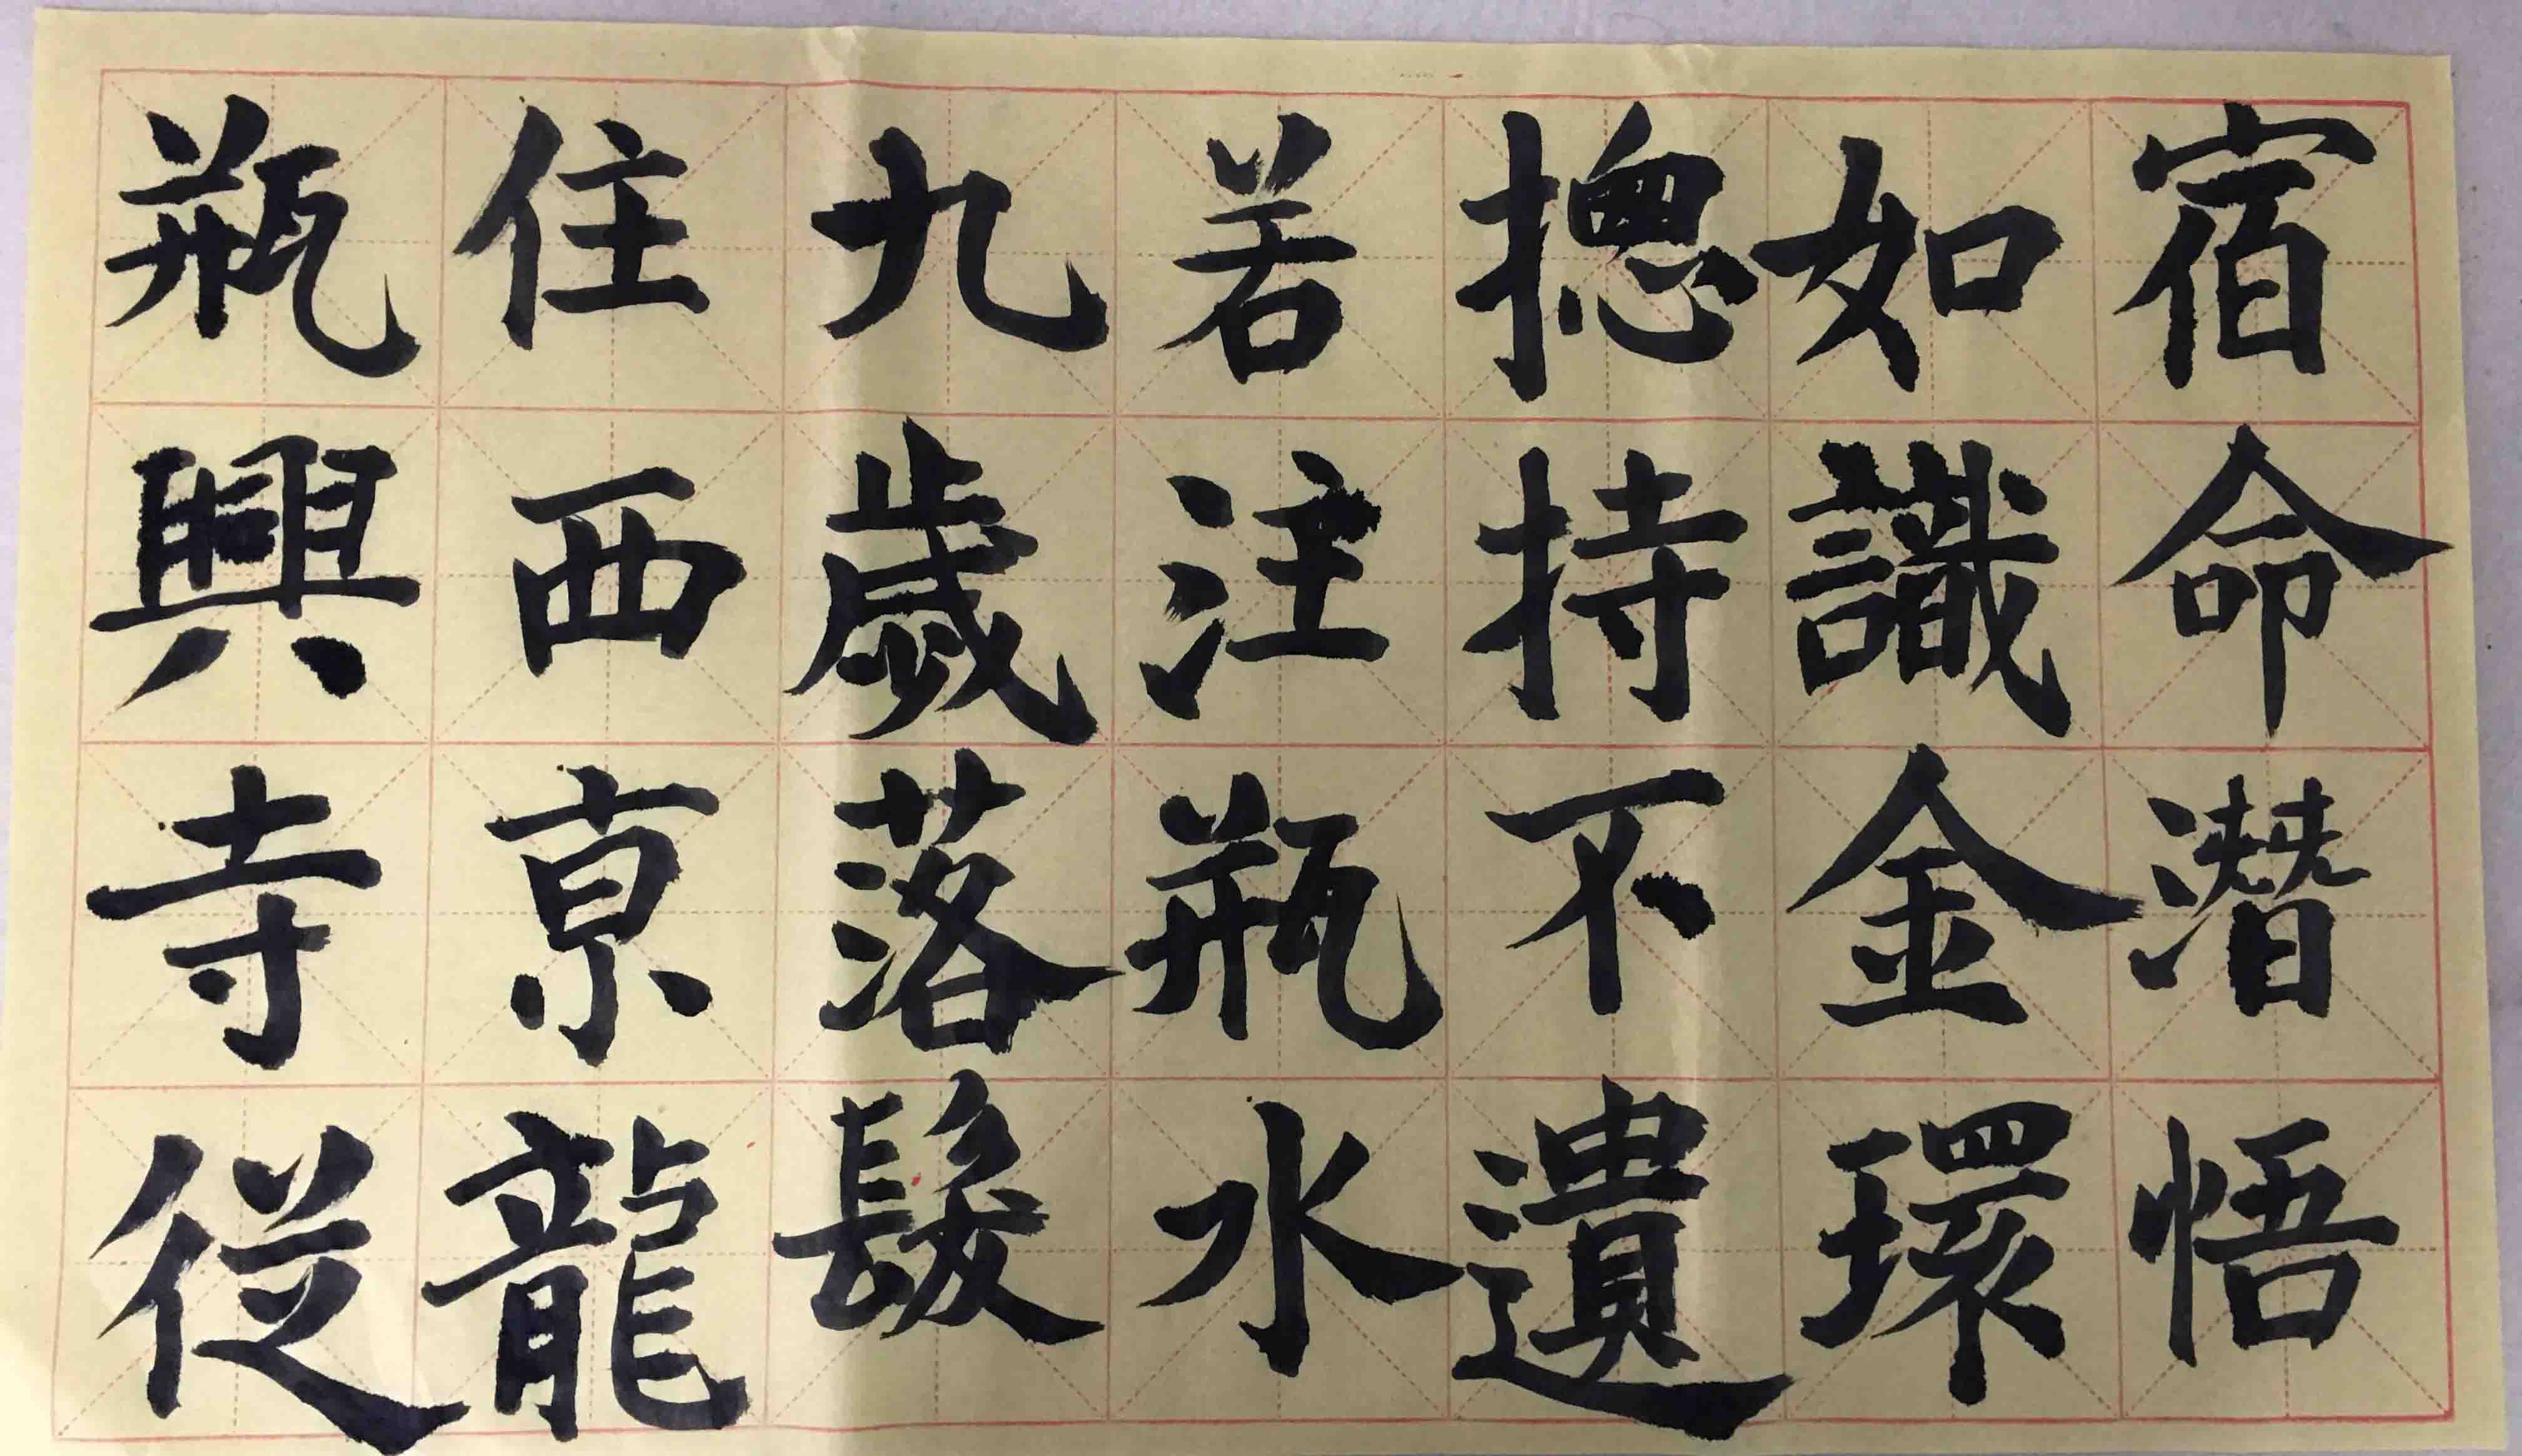 宿命潛悟
如識金環
揔持不遺
若注瓶水
九歲落髮
住西京龍
瓶興寺從